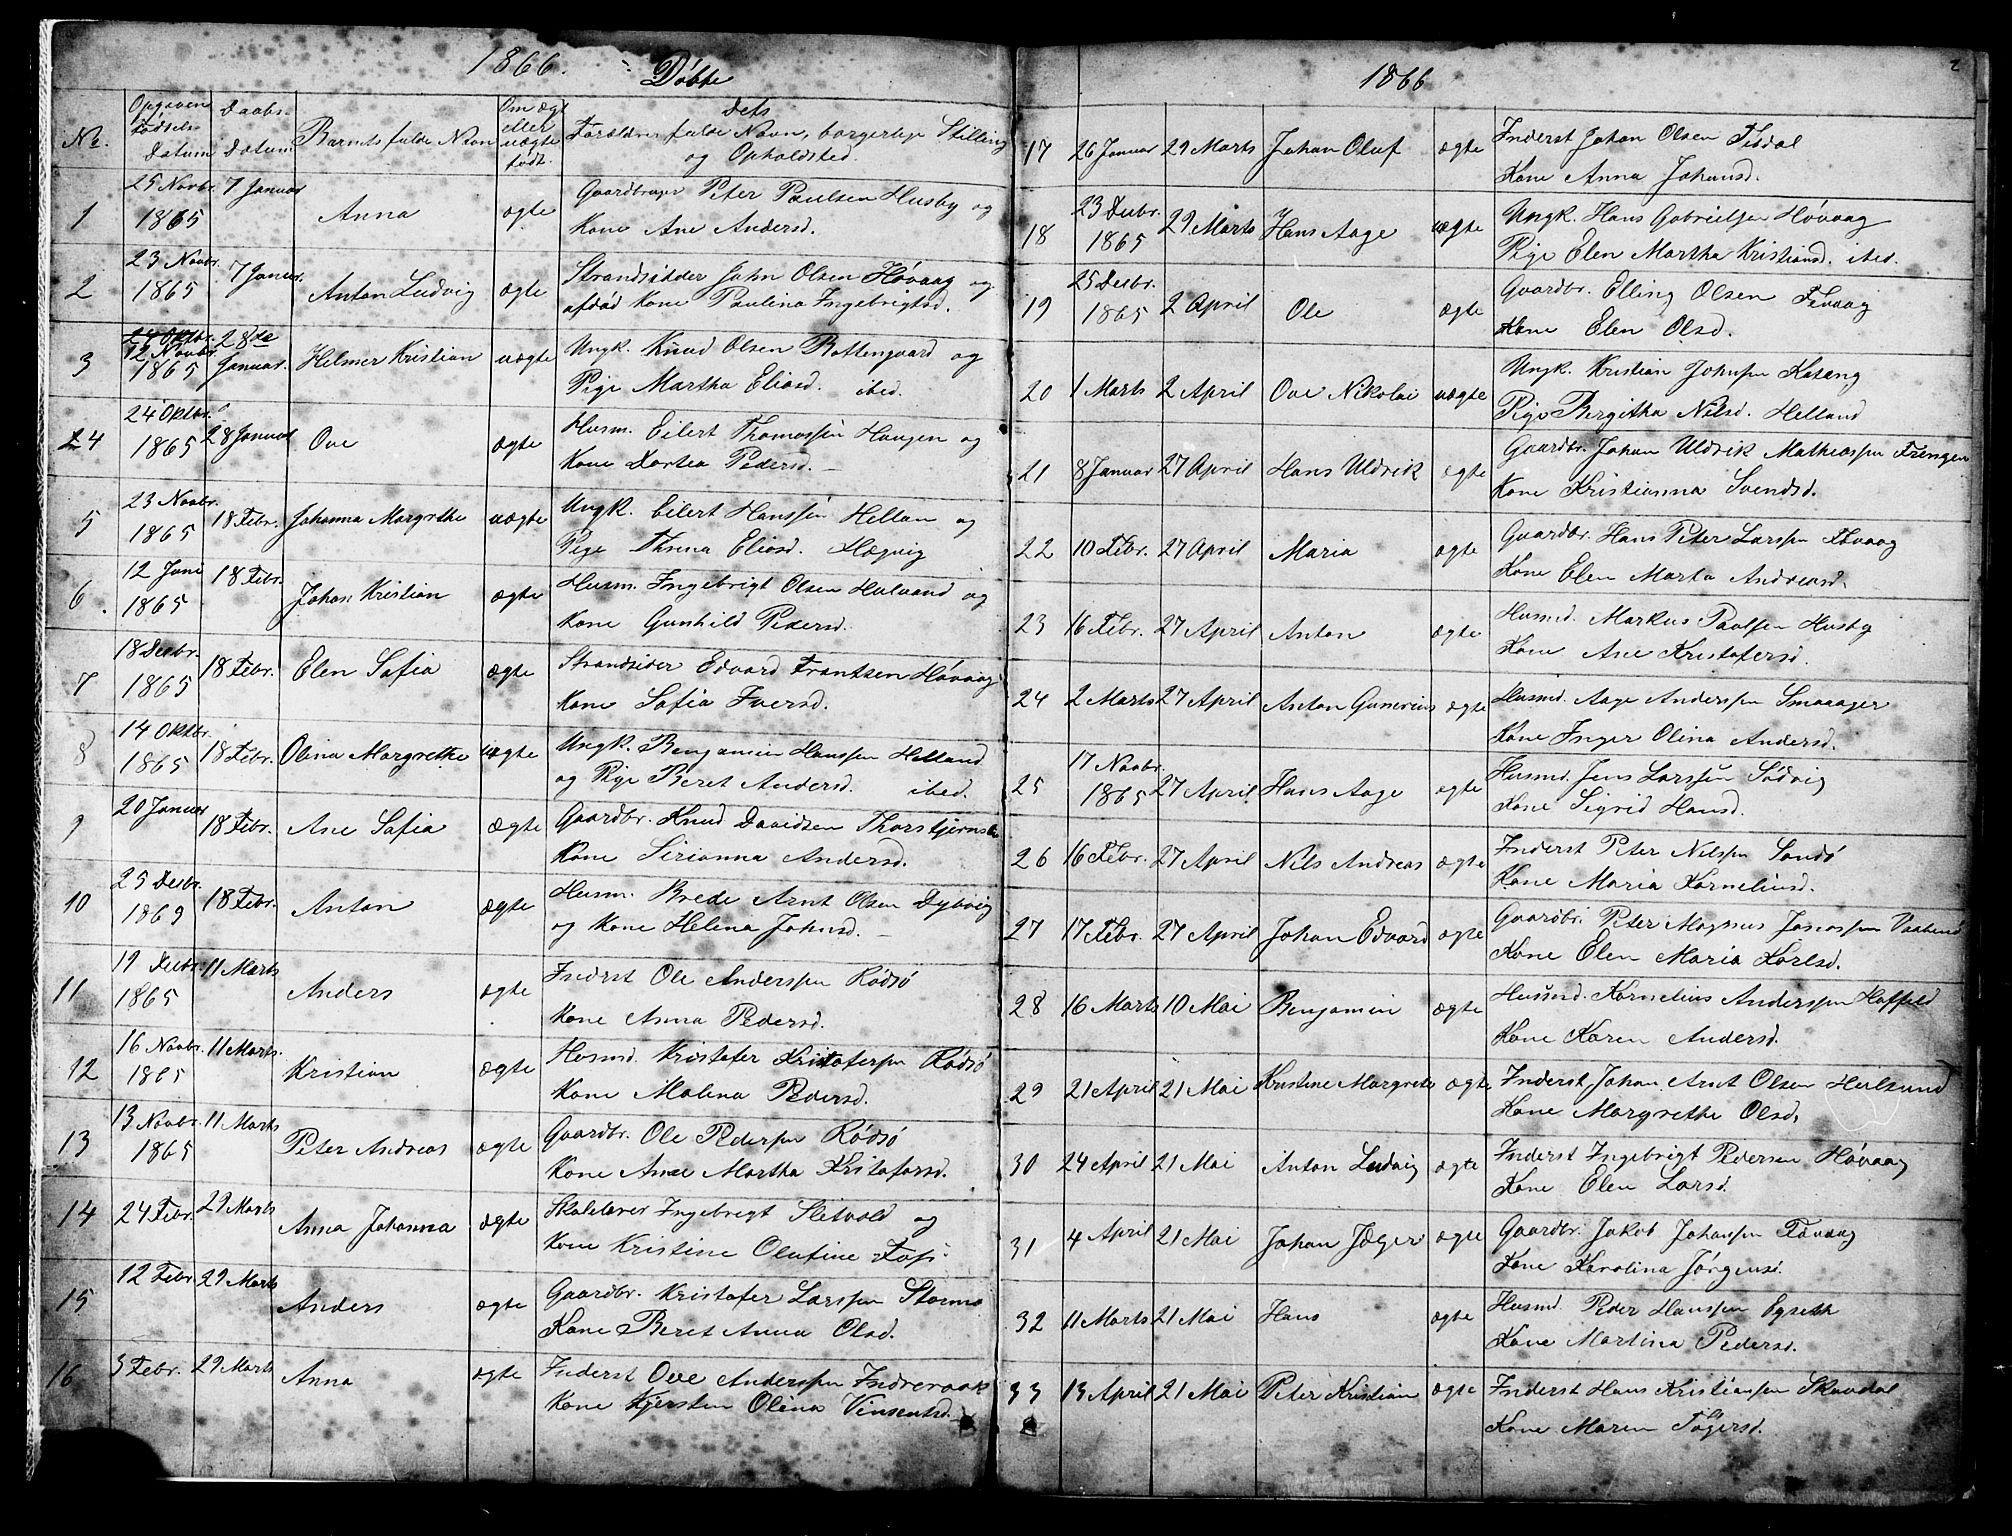 1866.
Døbte
No.
Opgaven Fødsels Datum
Daabs Datum
Barnets fulde Navn
Om ægte eller uægte født.
dets Forældres fulde Navn, borgerlige Stilling og Opholdsted.
1 25 Novbr. 1865 7 Januar Anna ægte Gaardbruger Peter Paulsen Husby og
Kone Ane Andersd.
2 23 Novbr. 1865 7 Januar. Anton Ludvig ægte Strandsidder John Olsen Høvaag og
afdød Kone Paulina Ingebrigtsd.
3 24 Oktbr. 12 Novbr. 1865 28de Januar. Helmer Kristian uægte Ungk. Knud Olsen Bottengaard og
Pige Martha Eliasd. ibid.
4 24 Oktbr. 1865 28 Januar Ove ægte Husm. Eilert Thomassen Haugen og
Kone Dortea Pedersd. —
5 23 Novbr. 1865 18 Febr. Johanna Margrethe uægte Ungk. Eilert Hanssen Hellan og
Pige Eliasd. Hægvig
6. 12 Juni 1865 18 Febr. Johan Kristian ægte Husm. Ingebrigt Olsen og
Kone Gunhild Pedersd.
7 18 Desbr. 1865 18 Febr. Elen Sofia ægte Strandsider Edvard Frantsen Høvaag
Kone Sofia Iversd.
8 14 Oktbr. 1865 18 Febr. Olina Margrethe uægte Ungk. Benjamin Hanssen Helland
og Pige Beret Andersd. ibid.
9 20 Januar 18 Febr. Ane Sofia ægte Gaardbr. Knud Davidsen
Kone Sirianna Andersd.
10 25 Desbr. 1869 18 Febr. Anton ægte Husm. Brede Arnt Olsen Dybvig
og Kone Helena Johnsd. —
11 19 Desbr. 1865 11 Marts Anders ægte Inderst Ole Anderssen Rødsø
Kone Anna Pedersd.
12 16 Novbr. 1865 11 Marts. Kristian ægte Husmd. Kristofer Kristofersen Rødsø
Kone Malena Pedersd.
13 13 Novbr. 1865 11 Marts Peter Andreas ægte Gaardbr. Ole Pedersen Rødsø
Kone Ane Martha Kristofersd.
14 24 Febr. 29 Marts Anna Johanna ægte Skolelærer Ingebrigt Sletvold og
Kone Kristine Olufine
15 12 Febr 29 Marts Anders ægte Gaardbr. Kristofer Larssen Stormo
Kone Beret Anna Olsd.
16 3 Febr. 29 Marts Anna ægte Inderst Ove Anderssen
Kone Kjersten Olina Vinsentsd.
1866
2
17 26 Januar 29 Marts Johan Oluf ægte Inderst Johan Olsen
Kone Anna Johansd.
18 23 Desbr. 1865 29 Marts Hans Aage uægte Ungk. Hans Gabrielsen Høvaag
Pige Elen Martha Kristiansd. ibid.
19 25 Desbr. 1865 2 April Ole ægte Gaardbr. Elling Olsen
Kone Elen Olsd.
20 1 Marts 2 April Ove Nikolai uægte Ungk. Kristian Johnsen
Pige Bergitha Nilsd. Helland
21 8 Januar 27 April Hans Uldrik ægte Gaardbr. Johan Uldrik Mathiassen
Kone Kristianna Svendsd.
22 10 Febr. 27 April Maria ægte Gaardbr. Hans Peter Larssen
Kone Elen Marta Andreasd.
23 16 Febr. 27 April Anton ægte Husmd. Markus Paulsen Husby
Kone Ane Kristofersd.
24 2 Marts 27 April Anton Gunerius ægte Husmd. Aage Anderssen Smaaager
Kone Inger Olina Andersd.
25 17 Novbr. 1865 27 April Hans Aage ægte Husmd. Jens Larssen Sødvig
Kone Sigrid Hansd.
26 16 Febr. 27 April Nils Andreas ægte Inderst Peter Nilsen Sandø
Kone Maria Korneliusd.
27 17 Febr. 27 April Johan Edvard ægte Gaardbr. Peter Magnus Jonassen
Kone Elen Maria Karlsd.
28 16 Marts 10 Mai Benjamin ægte Husmd. Kornelius Anderssen
Kone Karen Andersd.
29 21 April 21 Mai Kristine Margrete ægte Inderst Johan Arnt Olsen
Kone Margrethe Olsd.
30 24 April 21 Mai Anton Ludvig ægte Inderst Ingebrigt Pedersen Høvaag
Kone Elen Larsd.
31 4 April 21 Mai Johan Jæger ægte Gaardbr. Jakob Johansen
Kone Karolina Jørgensd.
32 11 Marts 21 Mai Hans ægte Husmd. Peder Hanssen
Kone Martina Pedersd.
33 13 April 21 Mai Peter Kristian ægte Inderst Hans Kristianssen Skavdal
Kone Maren